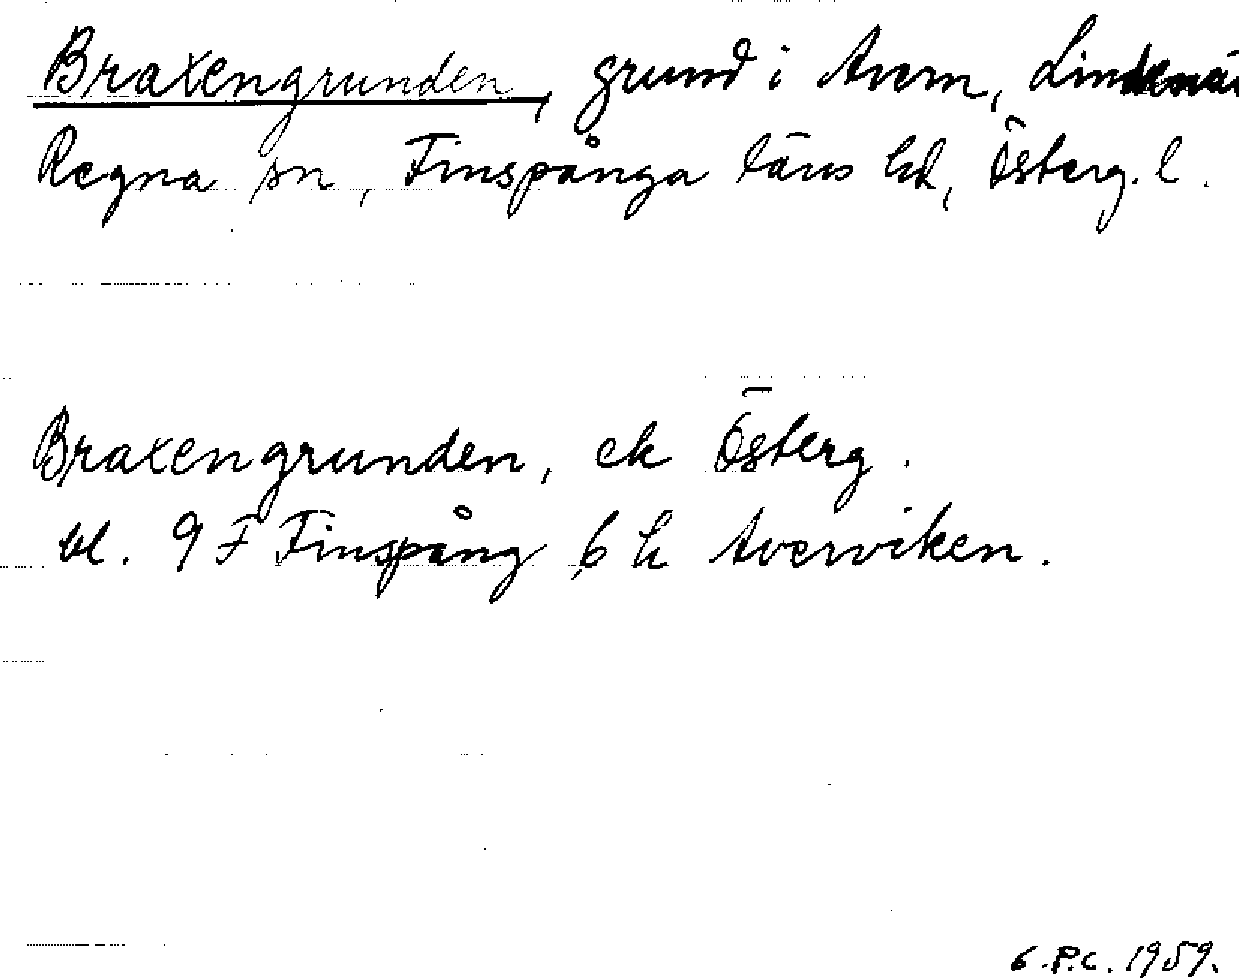 Braxengrunden, grund i Avern, Lindenäs
Regna sn, Finspånga läns hd, Österg. l.
Braxengrunden, ek Österg.
bl. 9 F Finspång 6 h Averviken.
G.P.C. 1959.